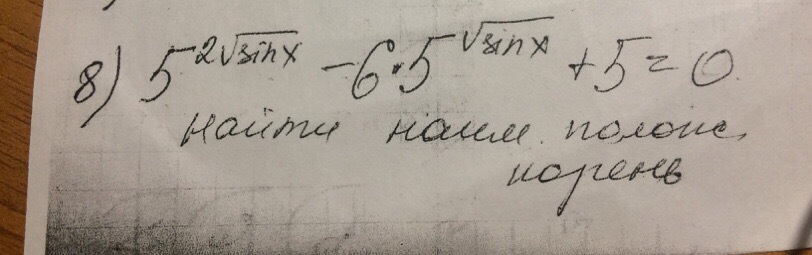 8) 5^{2√sinx} - 6·5^{√sinx} + 5 = 0
найти наим. полож.
корень